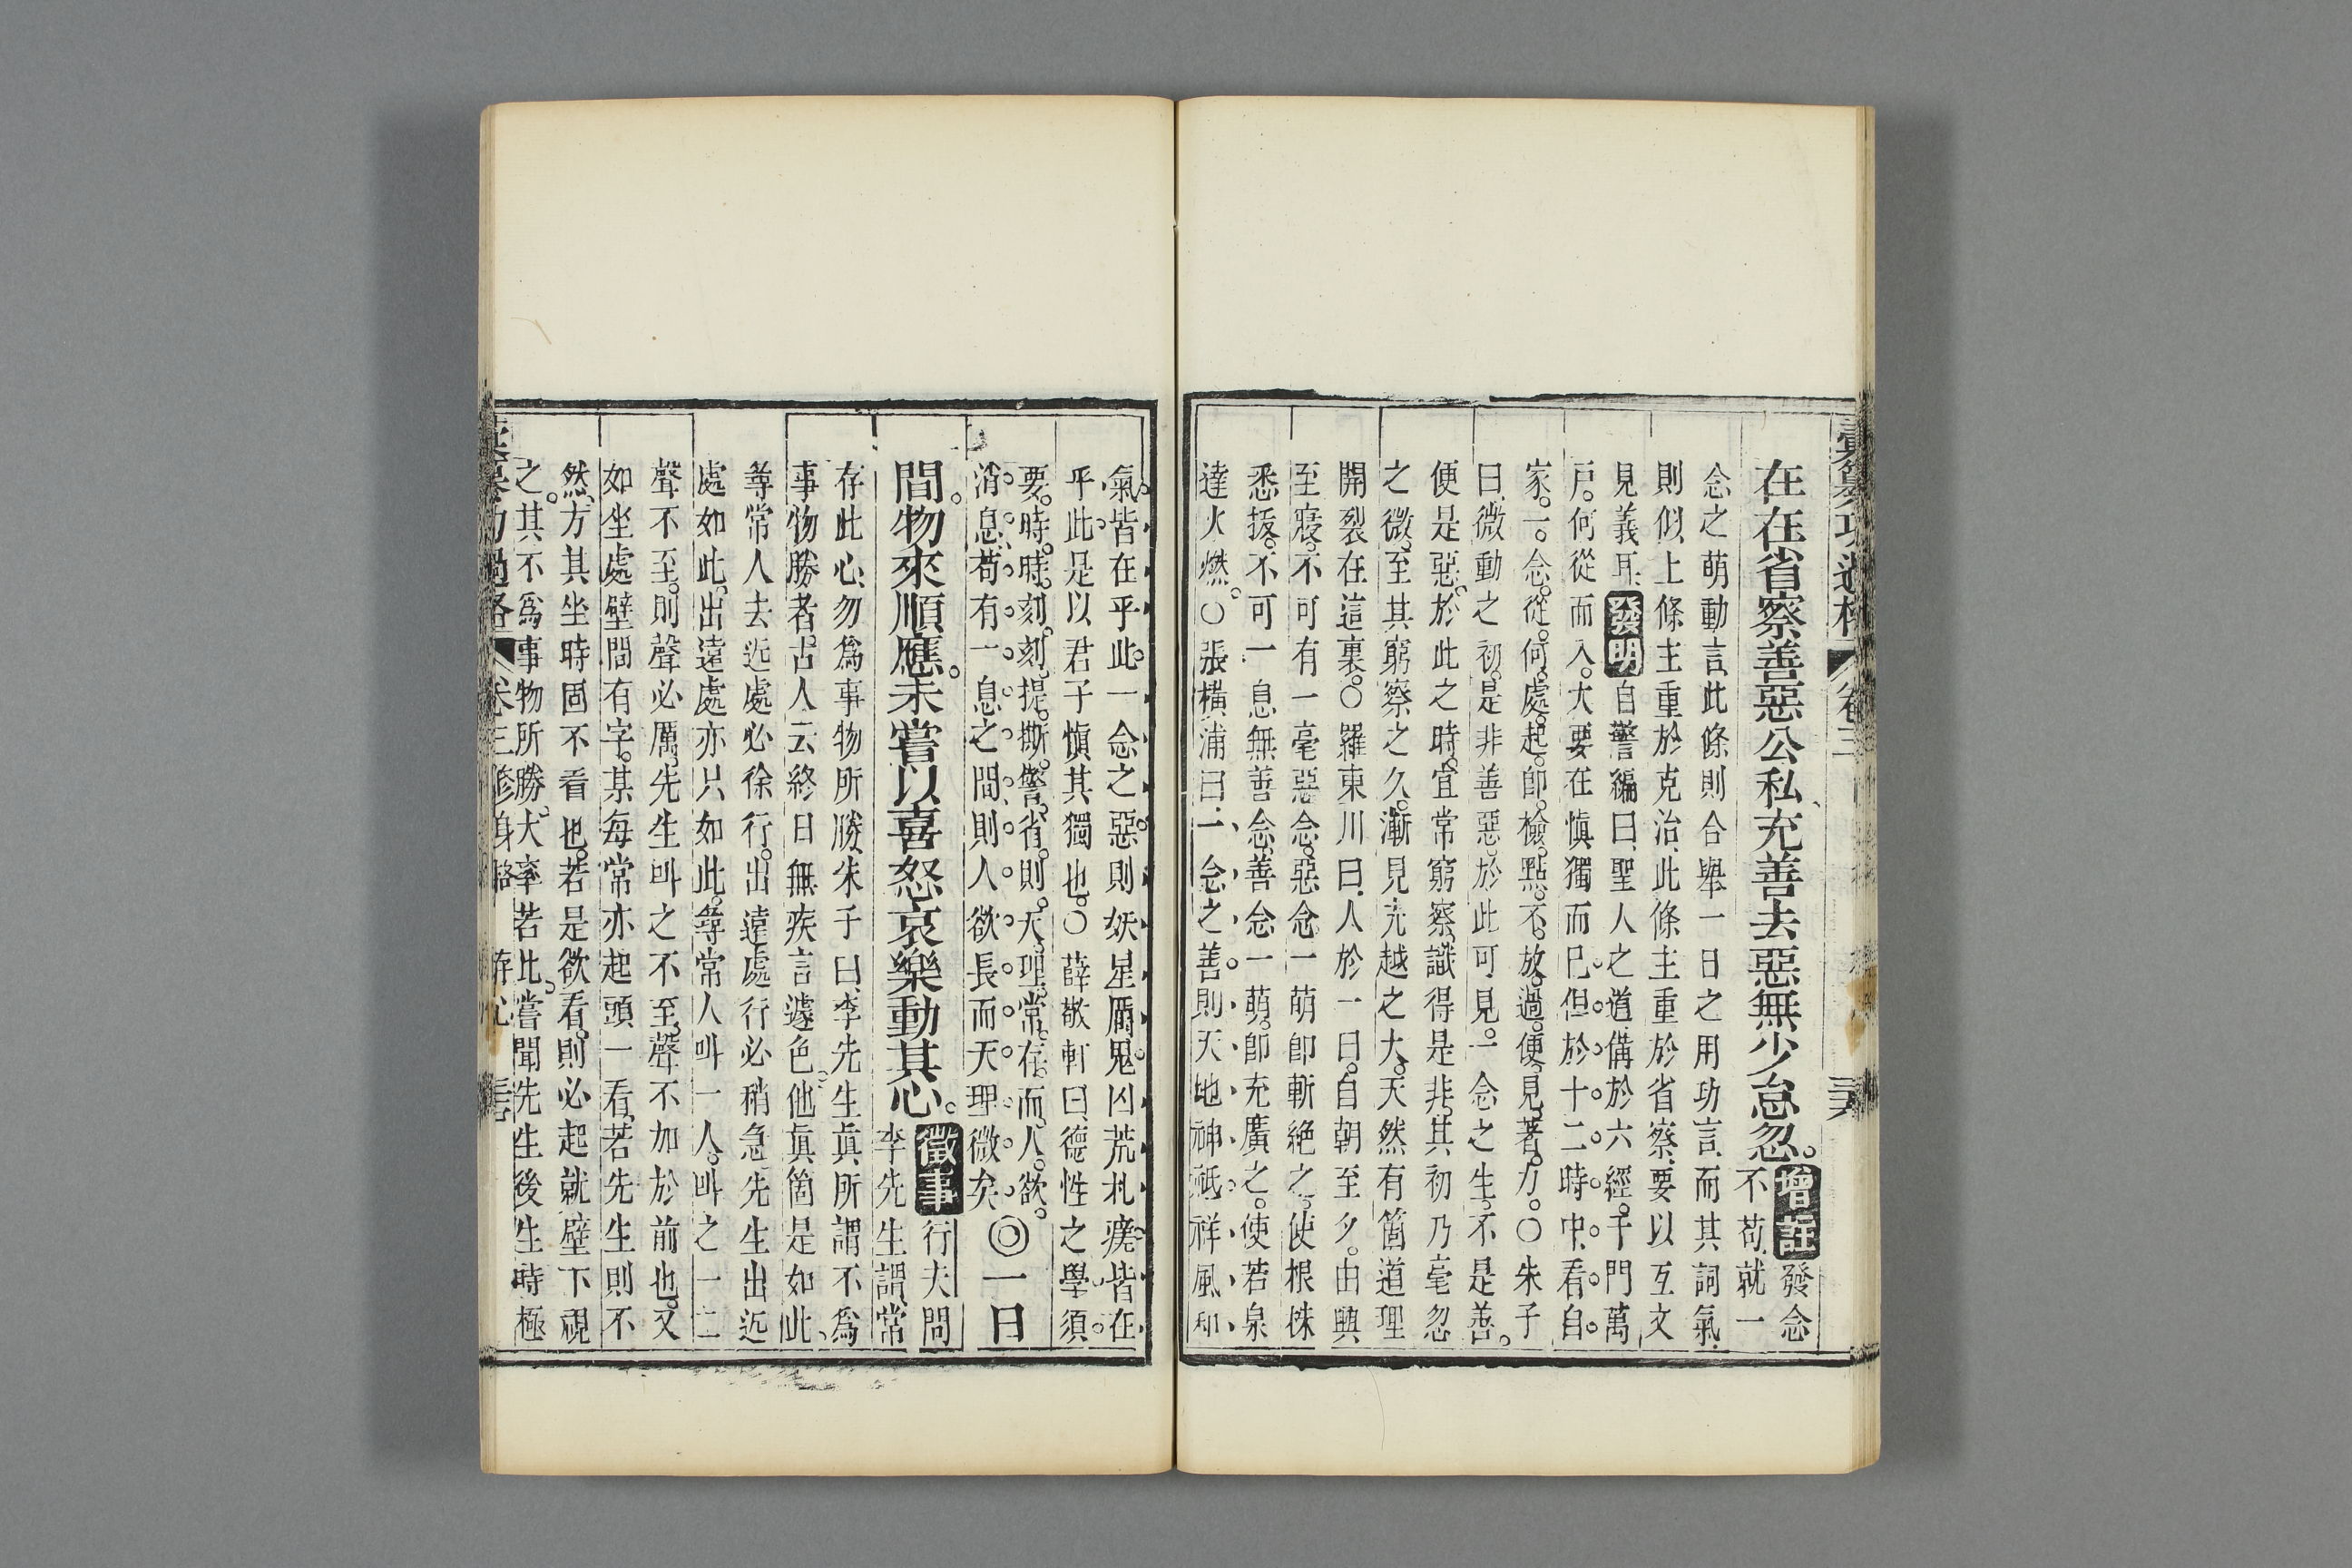 彙纂功過格 卷三 三六
在在省察善惡公私充善去惡無少怠忽。增註發念
不苟就一
念之萌動言此條則合舉一日之用功言而其詞氣
則似上條主重於克治此條主重於省察要以互文
見義耳發明自警編曰聖人之道備於六經。千門萬
戶。何從而入。大要在慎獨而已但於十二時中看自
家。一。念。從。何。處。起。即。檢。點。不。放。過。便。見。著。力。○朱子
曰微動之初是非善惡於此可見。一念之生不是善。
便是惡於此之時宜常窮察識得是非其初乃毫忽
之微至其窮察之久漸見充越之大。天然有箇道理
開裂在這裏。○羅東川曰人於一日。自朝至夕。由興
至寢。不可有一毫惡念。惡念一萌即斬絕之。使根株
悉拔。不可一息無善念善念一萌即充廣之。使若泉
達火燃。○張橫浦曰一念之善則天地神祇祥風和
氣皆在乎此一念之惡則妖星厲鬼凶荒札瘥皆在
乎此是以君子慎其獨也。○薛敬軒曰德性之學須
要。時。時。刻。刻。提。撕。警。省。則。天。理。常。存。而。人。欲。
消息苟有一息之間則人欲長而天理微矣◎一日
間。物來順應。未嘗以喜怒哀樂動其心。徵事行夫問
李先生謂常
存此心勿為事物所勝朱子曰李先生真所謂不為
事物勝者古人云終日無疾言遽色他真箇是如此
尋常人去近處必徐行。出遠處行必稍急先生出近
處如此出遠處亦只如此。尋常人叫一人。叫之一二
聲不至。則聲必厲先生叫之不至聲不加於前也。又
如坐處壁間有字。某每常亦起頭一看若先生則不
然方其坐時固不看也。若是欲看。則必起就壁下視
之。其不為事物所勝。大率若此。嘗聞先生後生時極
彙纂功過格 卷三 修身格 存心 三七